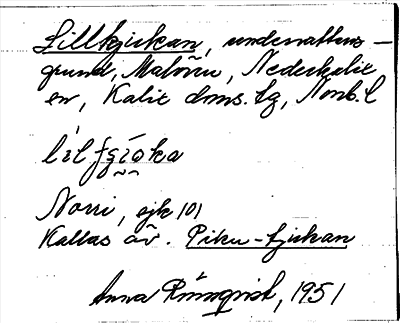 Lillkjickan, undervattens-
grund, Malören, Nederkalix
sn, Kalix doms. lg, Norrb. l
Norri, sjk 101
Kallas äv. Piku-tjickan
Anna Rönnqvist, 1951